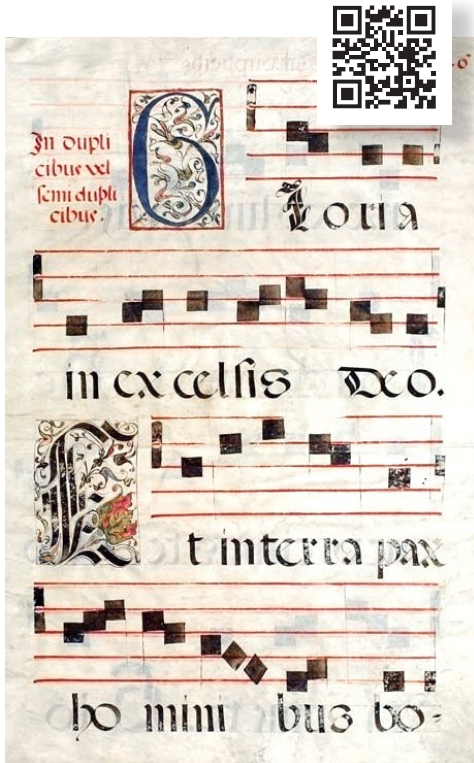 In dupli
cibus vel
ſemi dupli
cibus.
Gloria
in ex celſis Deo.
Et in terra pax
ho mini bus bo-